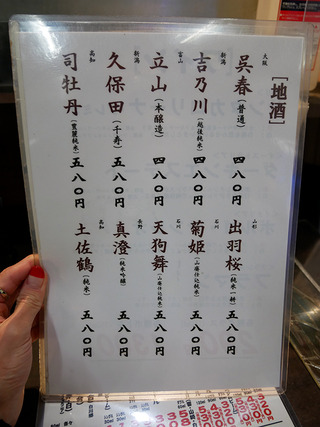 ［地酒］
大阪
呉春（普通） 四八〇円
新潟
吉乃川（越後純米） 四八〇円
富山
立山（本醸造） 四八〇円
新潟
久保田（千寿） 五八〇円
高知
司牡丹（豊麗純米） 五八〇円
山形
出羽桜（純米一耕） 五八〇円
石川
菊姫（山廃仕込純米） 五八〇円
石川
天狗舞（山廃仕込純米） 五八〇円
長野
真澄（純米吟醸） 五八〇円
高知
土佐鶴（純米） 五八〇円